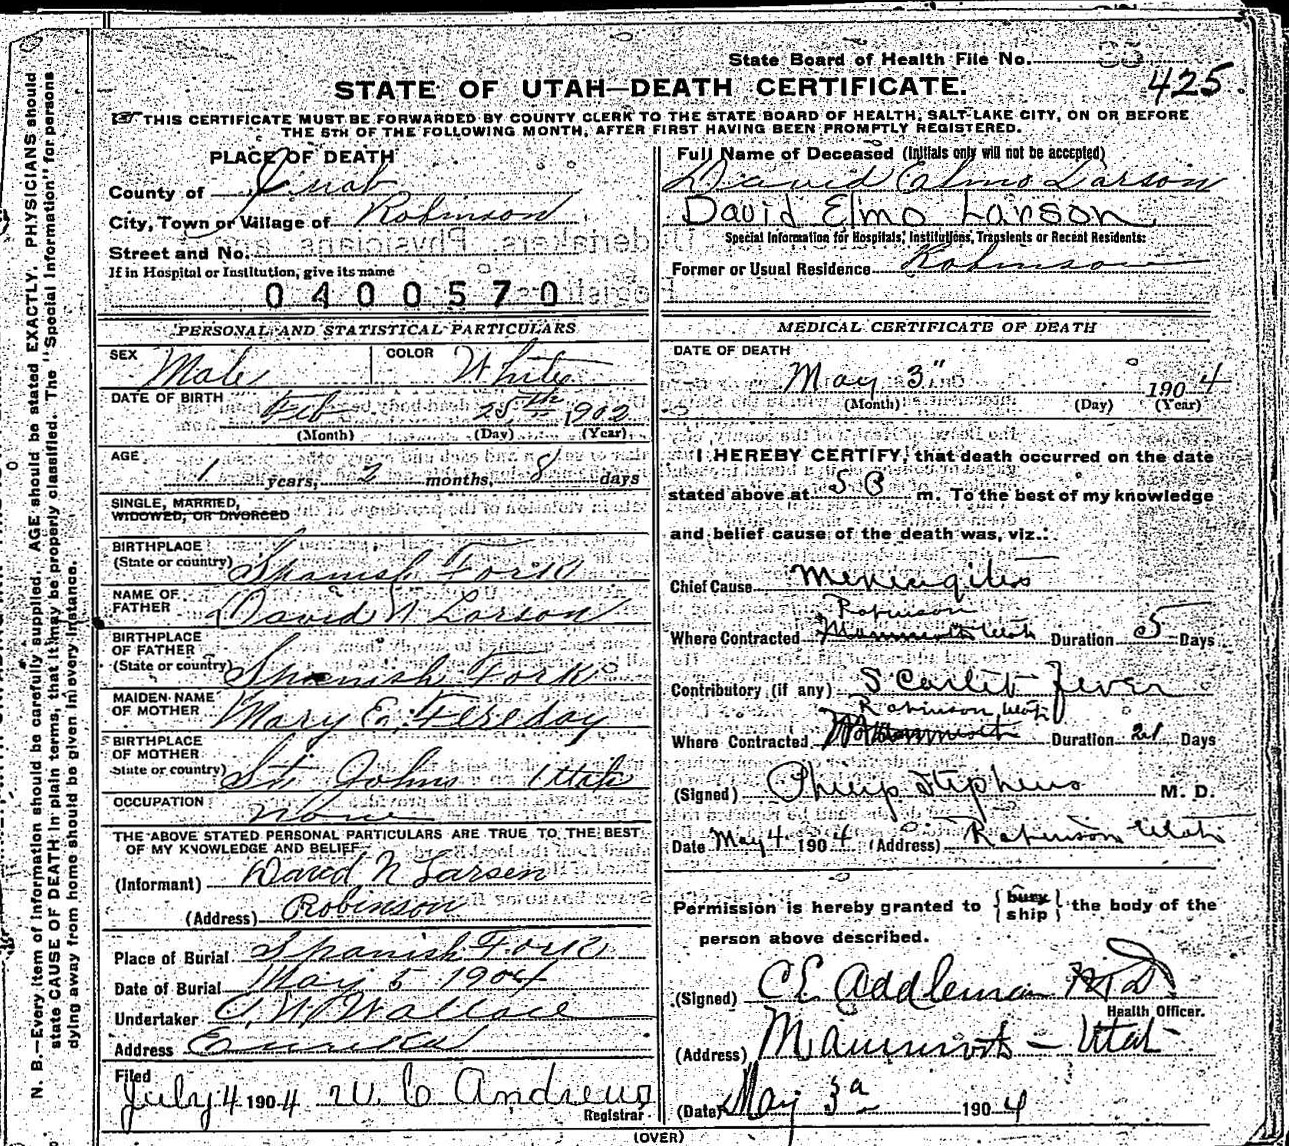 State Board of Health File No. 425.
STATE OF UTAH—DEATH CERTIFICATE.
THIS CERTIFICATE MUST BE FORWARDED BY COUNTY CLERK TO THE STATE BOARD OF HEALTH, SALT LAKE CITY, ON OR BEFORE
THE 5TH OF THE FOLLOWING MONTH, AFTER FIRST HAVING BEEN PROMPTLY REGISTERED.
PLACE OF DEATH
County of Juab
City, Town or Village of Robinson
Street and No.
If in Hospital or Institution, give its name
0400570
Full Name of Deceased (Initials only will not be accepted)
David Elmo Larson
David Elmo Larson
Special Information for Hospitals, Institutions, Transients or Recent Residents:
Former or Usual Residence Robinson
PERSONAL AND STATISTICAL PARTICULARS
SEX Male COLOR White
DATE OF BIRTH Feb 25th 1902
(Month) (Day) (Year)
AGE 1 years, 2 months, 8 days
SINGLE, MARRIED,
WIDOWED, OR DIVORCED
BIRTHPLACE
(State or country) Spanish Fork
NAME OF
FATHER David N Larson
BIRTHPLACE
OF FATHER
(State or country) Spanish Fork
MAIDEN NAME
OF MOTHER Mary E. Fereday
BIRTHPLACE
OF MOTHER
(State or country) St Johns Utah
OCCUPATION None
THE ABOVE STATED PERSONAL PARTICULARS ARE TRUE TO THE BEST
OF MY KNOWLEDGE AND BELIEF
(Informant) David N Larsen
(Address) Robinson
Place of Burial Spanish Fork
Date of Burial May 5 1904
Undertaker C. W. Wallace
Address Eureka
Filed
July 4 1904 W C Andrews
Registrar
MEDICAL CERTIFICATE OF DEATH
DATE OF DEATH
May 3" 1904
(Month) (Day) (Year)
I HEREBY CERTIFY, that death occurred on the date
stated above at 5 P m. To the best of my knowledge
and belief cause of the death was, viz.:
Chief Cause Meningitis
Robinson
Where Contracted Mammoth Utah Duration 5 Days
Contributory (if any) Scarlet Fever
Robinson, Utah
Where Contracted Mammoth Duration 21 Days
(Signed) Philip Stephens M. D.
Date May 4 1904 (Address) Robinson Utah
Permission is hereby granted to { bury ship } the body of the
person above described.
(Signed) C E Addleman M D
Health Officer.
(Address) Mammoth - Utah
(Date) May 3d 1904
(OVER)
N. B.—Every item of information should be carefully supplied. AGE should be stated EXACTLY. PHYSICIANS should
state CAUSE OF DEATH in plain terms, that it may be properly classified. The "Special Information" for persons
dying away from home should be given in every instance.